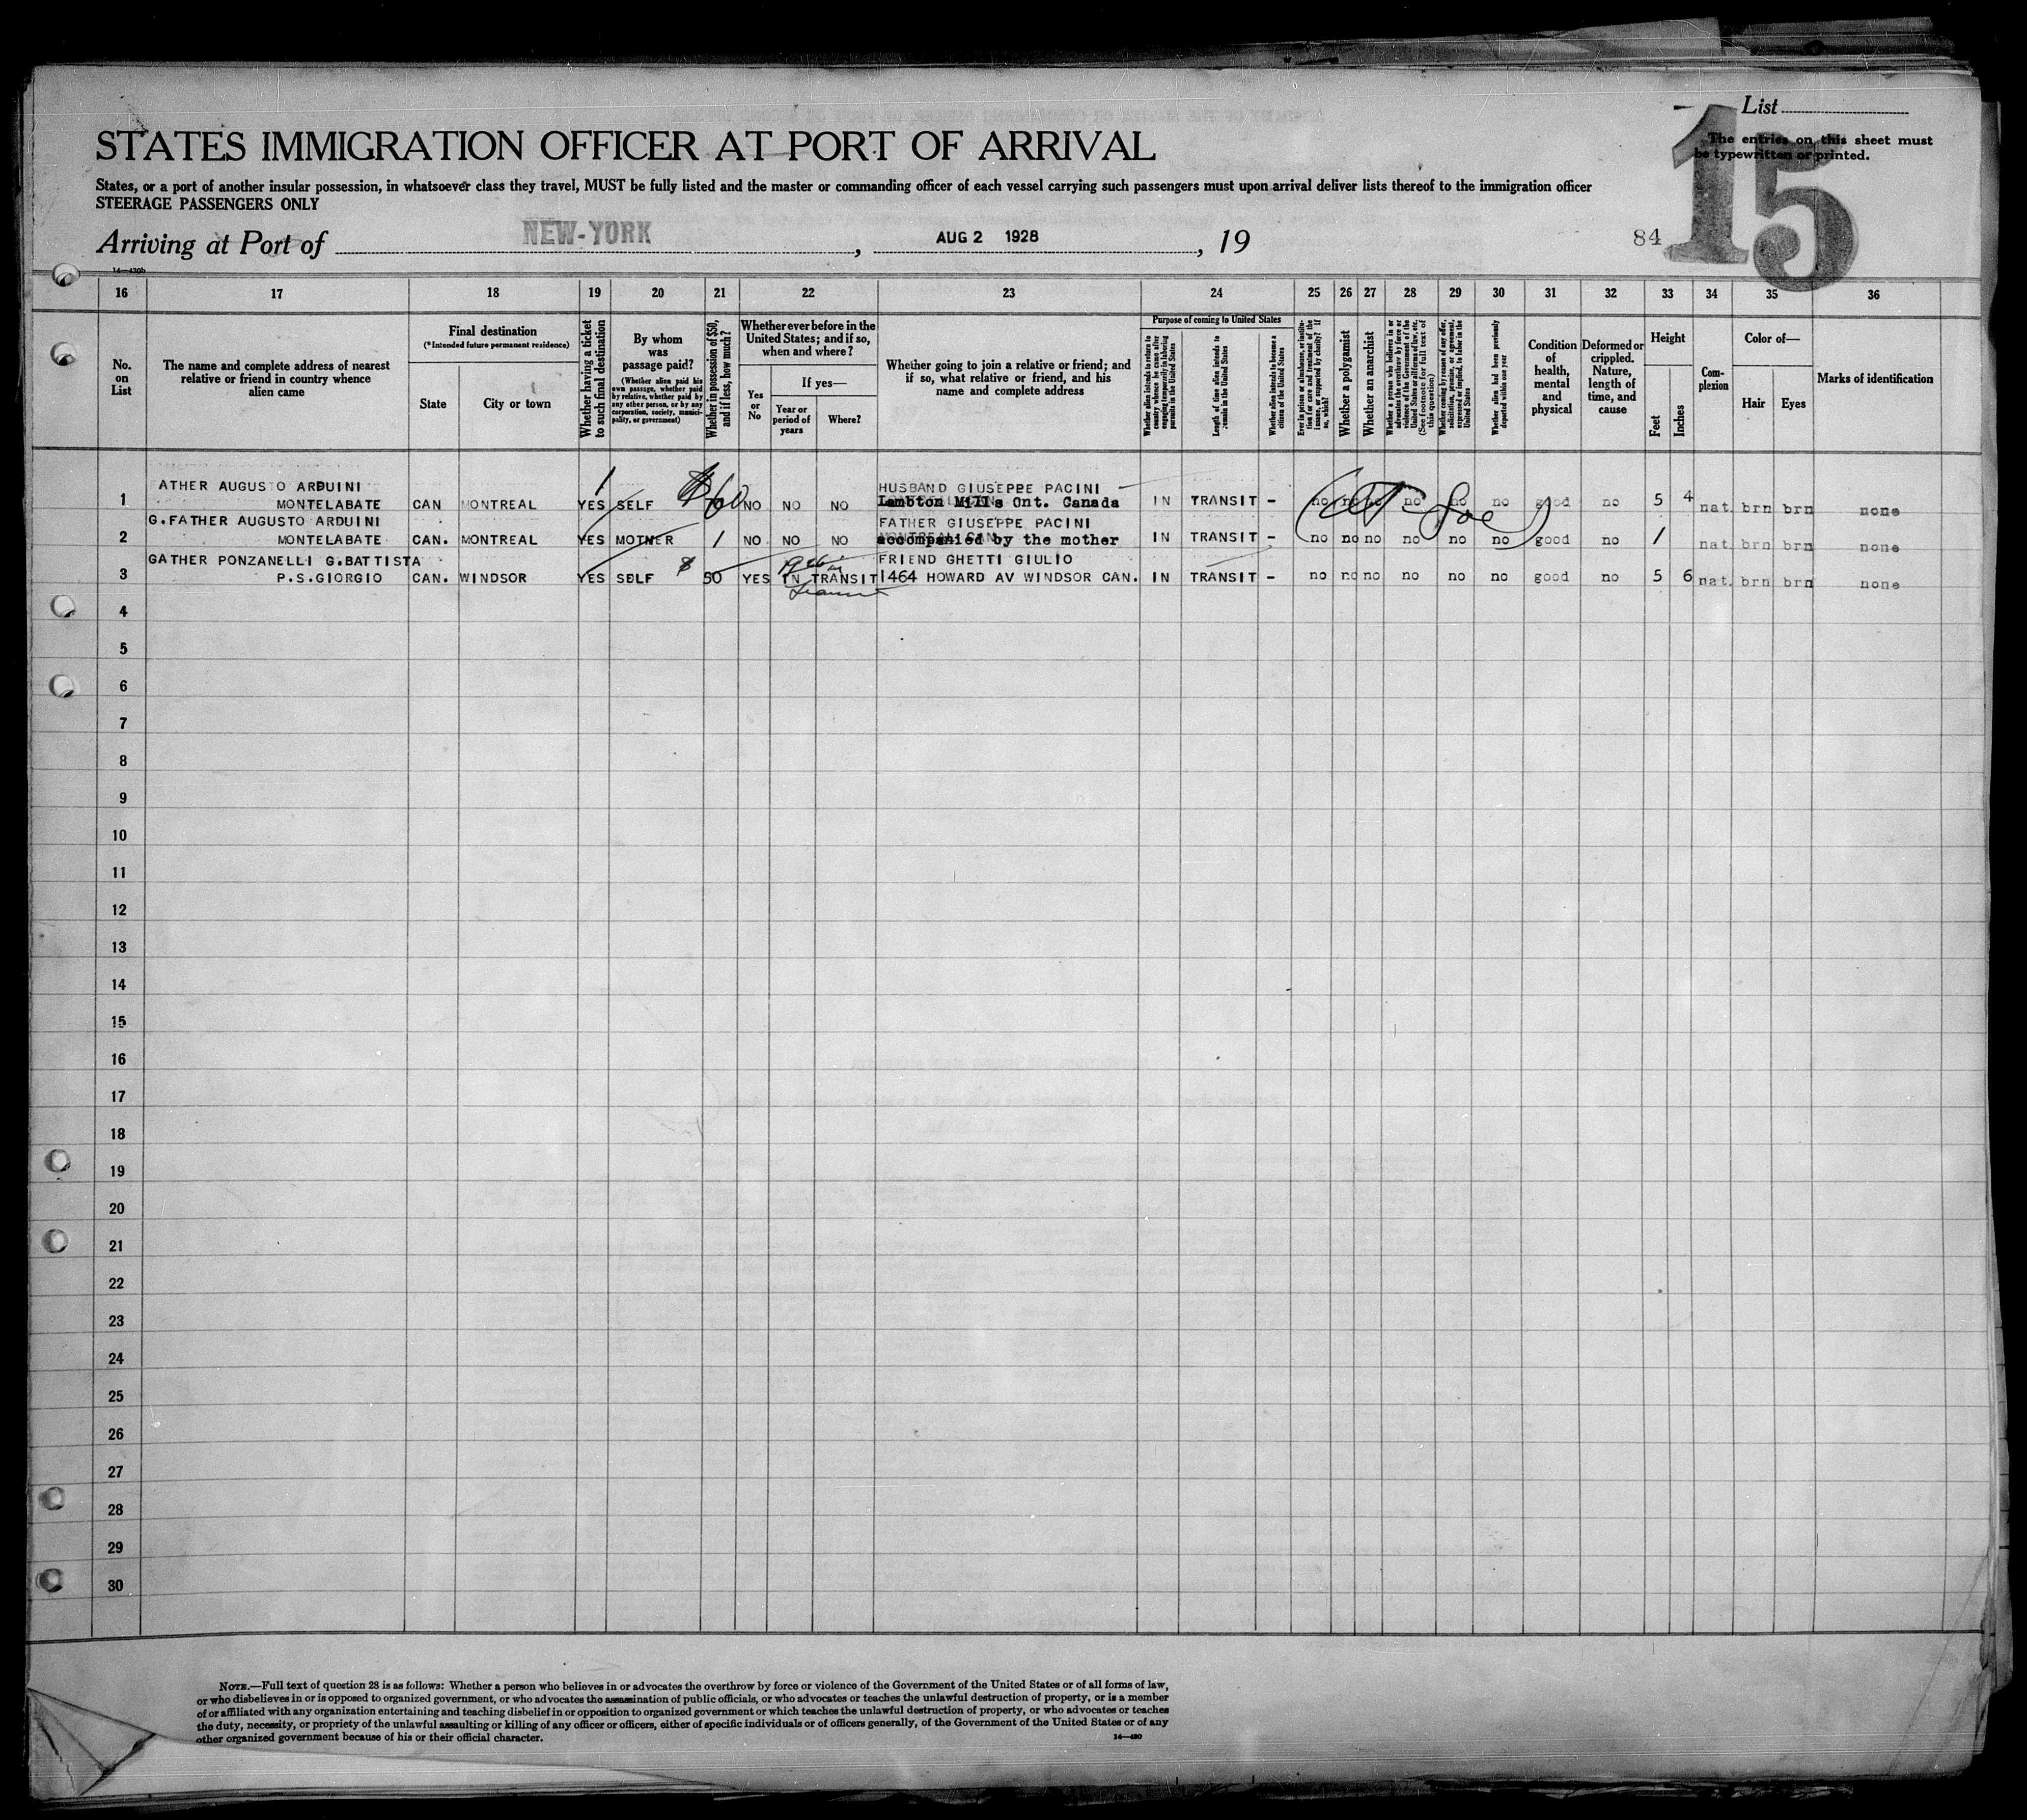 List
STATES IMMIGRATION OFFICER AT PORT OF ARRIVAL
The entries on this sheet must
be typewritten or printed.
15
States, or a port of another insular possession, in whatsoever class they travel, MUST be fully listed and the master or commanding officer of each vessel carrying such passengers must upon arrival deliver lists thereof to the immigration officer
STEERAGE PASSENGERS ONLY
Arriving at Port of NEW-YORK, AUG 2 1928, 19
84
14—430b
16 17 18 19 20 21 22 23 24 25 26 27 28 29 30 31 32 33 34 35 36
No. on List
The name and complete address of nearest relative or friend in country whence alien came
Final destination
(*Intended future permanent residence)
State
City or town
Whether having a ticket to such final destination
By whom was passage paid?
(Whether alien paid his own passage, whether paid by relative, whether paid by any other person, or by any corporation, society, municipality, or government)
Whether in possession of $50, and if less, how much?
Whether ever before in the United States; and if so, when and where?
Yes or No
If yes—
Year or period of years
Where?
Whether going to join a relative or friend; and if so, what relative or friend, and his name and complete address
Purpose of coming to United States
Whether alien intends to return to country whence he came after engaging temporarily in laboring pursuits in the United States
Length of time alien intends to remain in the United States
Whether alien intends to become a citizen of the United States
Ever in prison or almshouse, or institution for care and treatment of the insane, or supported by charity? If so, which?
Whether a polygamist
Whether an anarchist
Whether a person who believes in or advocates the overthrow by force or violence of the Government of the United States or all forms of law, etc. (See footnote for full text of this question)
Whether coming by reason of any offer, solicitation, promise, or agreement, expressed or implied, to labor in the United States
Whether alien had been previously deported within one year
Condition of health, mental and physical
Deformed or crippled. Nature, length of time, and cause
Height
Feet
Inches
Complexion
Color of—
Hair
Eyes
Marks of identification
ATHER AUGUSTO ARDUINI HUSBAND GIUSEPPE PACINI
1 MONTELABATE CAN MONTREAL YES SELF $60 NO NO NO Lambton Mills Ont. Canada IN TRANSIT - no no no no no no good no 5 4 nat. brn brn none
G.FATHER AUGUSTO ARDUINI FATHER GIUSEPPE PACINI
2 MONTELABATE CAN. MONTREAL YES MOTNER 1 NO NO NO accompanied by the mother IN TRANSIT - no no no no no no good no 1 nat. brn brn none
GATHER PONZANELLI G.BATTISTA FRIEND GHETTI GIULIO
3 P.S.GIORGIO CAN. WINDSOR YES SELF $ 50 YES IN TRANSIT 1464 HOWARD AV WINDSOR CAN. IN TRANSIT - no no no no no no good no 5 6 nat. brn brn none
4
5
6
7
8
9
10
11
12
13
14
15
16
17
18
19
20
21
22
23
24
25
26
27
28
29
30
NOTE.—Full text of question 28 is as follows: Whether a person who believes in or advocates the overthrow by force or violence of the Government of the United States or of all forms of law,
or who disbelieves in or is opposed to organized government, or who advocates the assassination of public officials, or who advocates or teaches the unlawful destruction of property, or is a member
of or affiliated with any organization entertaining and teaching disbelief in or opposition to organized government or which teaches the unlawful destruction of property, or who advocates or teaches
the duty, necessity, or propriety of the unlawful assaulting or killing of any officer or officers, either of specific individuals or of officers generally, of the Government of the United States or of any
other organized government because of his or their official character.
14—430